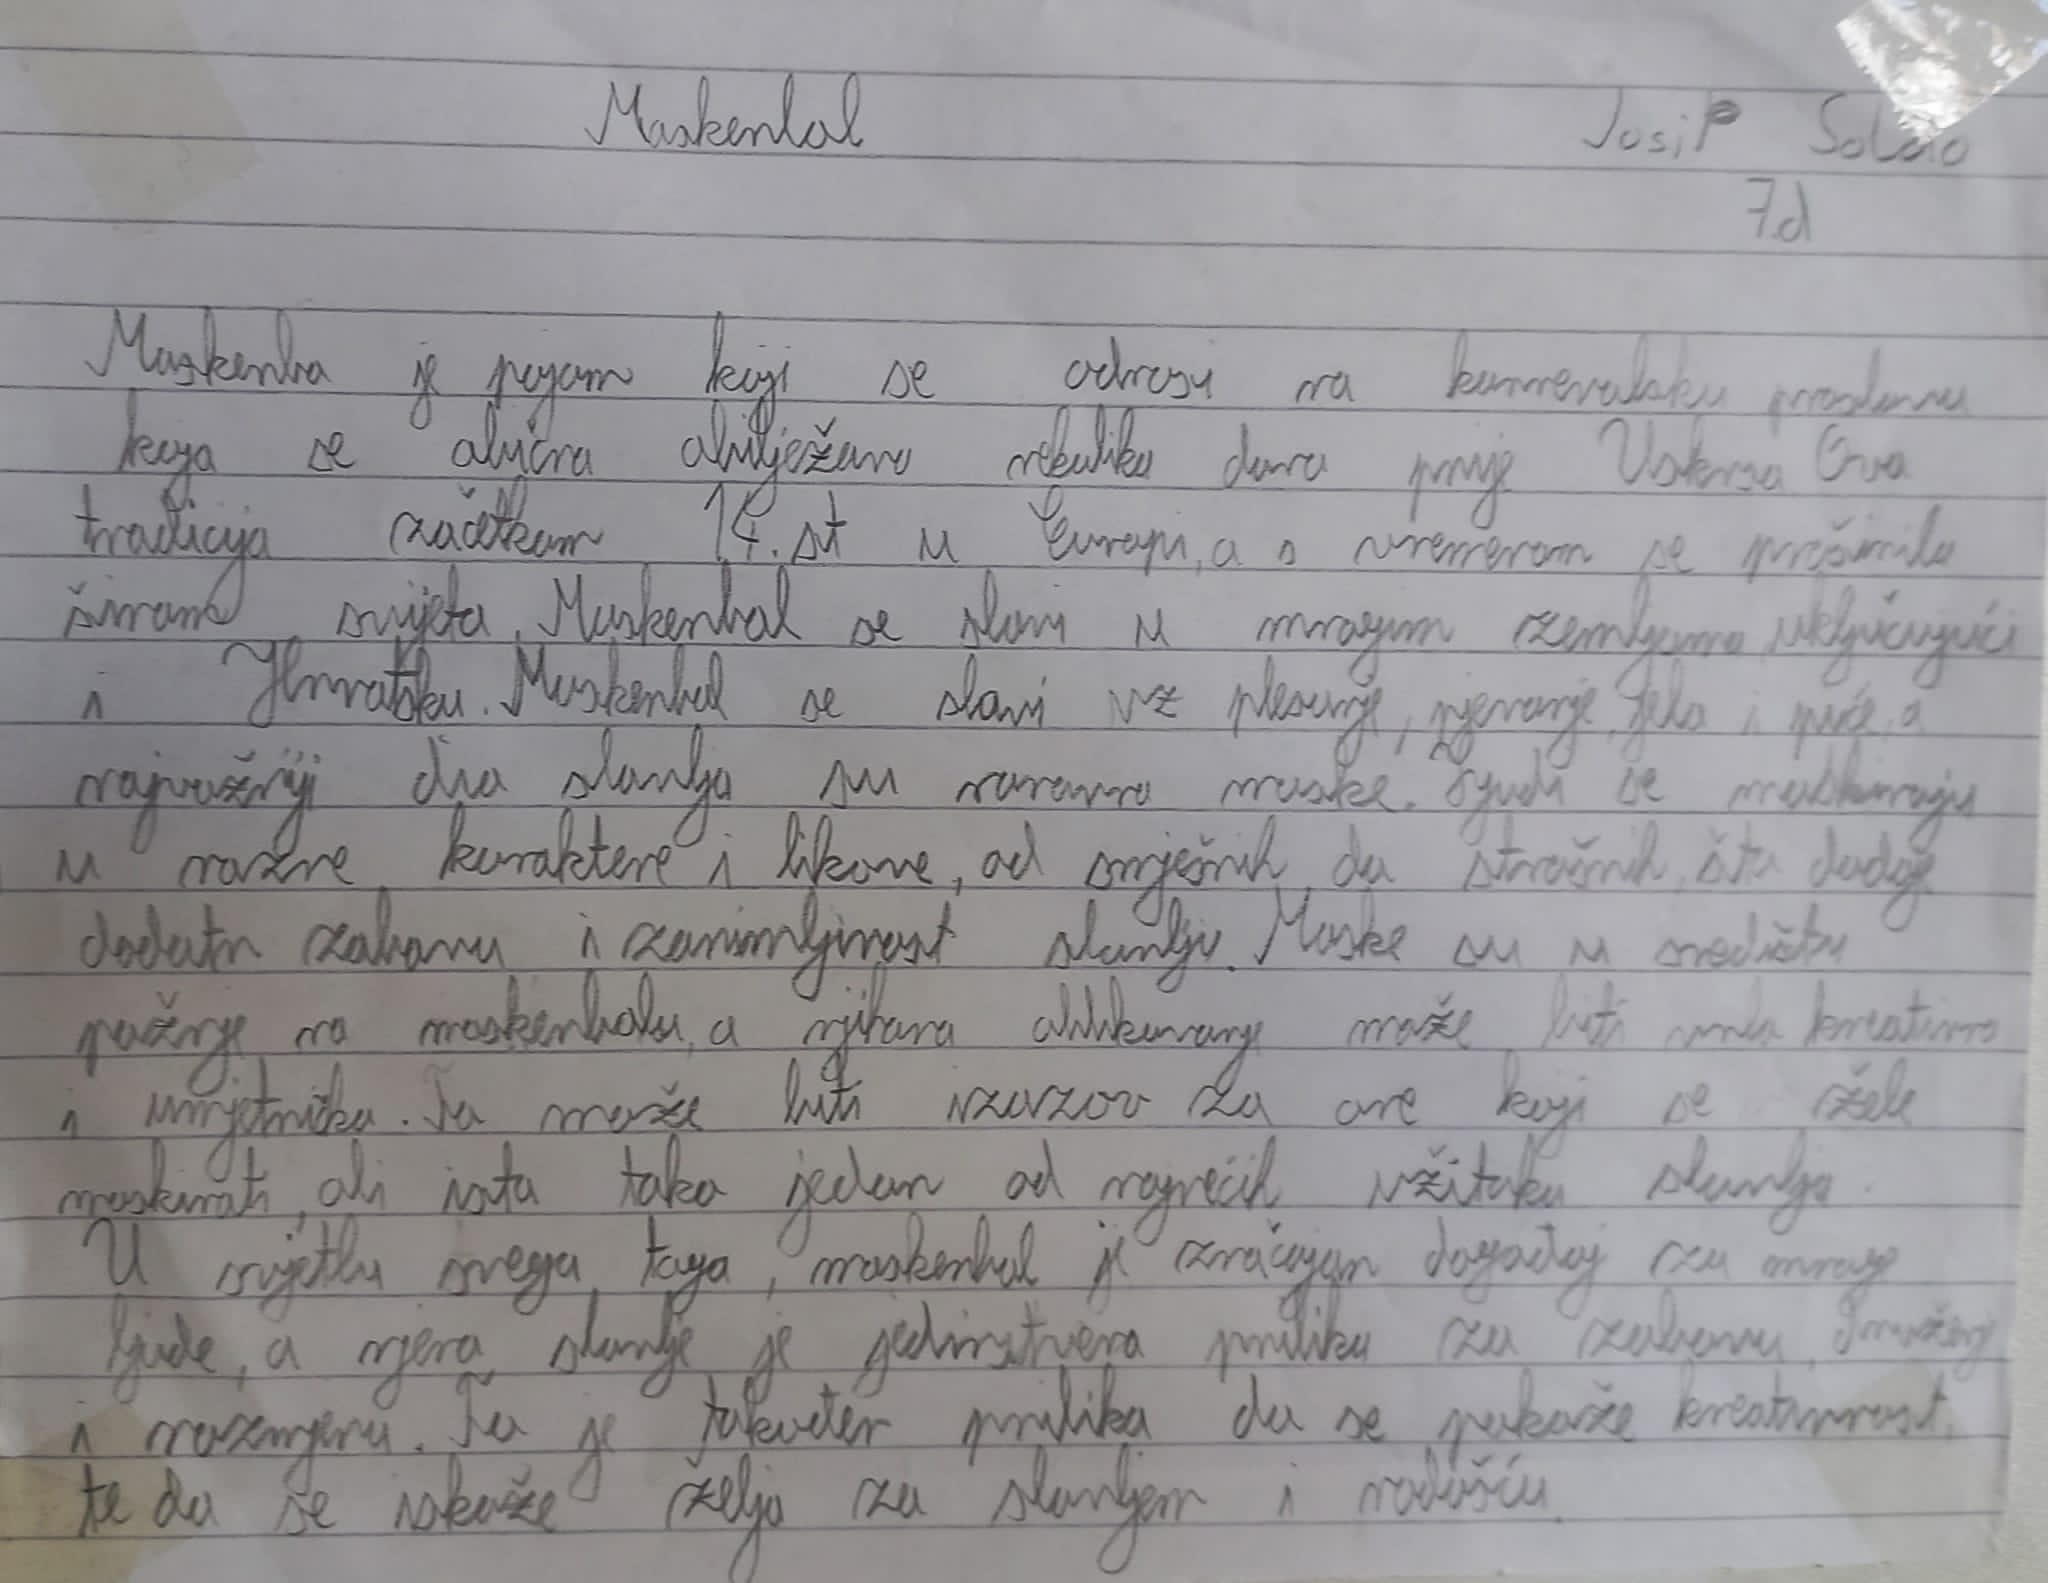 Maskenbal Josip Soldo
7.d
Maskenba je pojam koji se odnosi na karnevalsku proslavu
koja se obično obilježava nekoliko dana prije Uskrsa Ova
tradicija začetkom 14. st u Europi, a s vremenom se proširila
širom svijeta. Maskenbal se slavi u mnogim zemljama uključujući
i Hrvatsku. Maskenbal se slavi uz plesanje, pjevanje, jelo i piće, a
najvažniji dio slavlja su naravno maske. Ljudi se maskiraju
u razne karaktere i likove, od smješnih do strašnih, što dodaje
dodatn zabavu i zanimljivost slavlju. Maske su u središtu
pažnje na maskenbalu, a njihova oblikovanje može biti vrlo kreativno
i umjetničko. To može biti izazov za one koji se žele
maskirati, ali isto tako jedan od najvećih užitaka slavlja.
U svjetlu svega toga, maskenbal je značajan događaj za mnoge
ljude, a njeno slavlje je jedinstvena prilika za zabavu, druženje
i razmjenu. To je također prilika da se pokaže kreativnost,
te da se iskaže želja za slavljem i radošću.